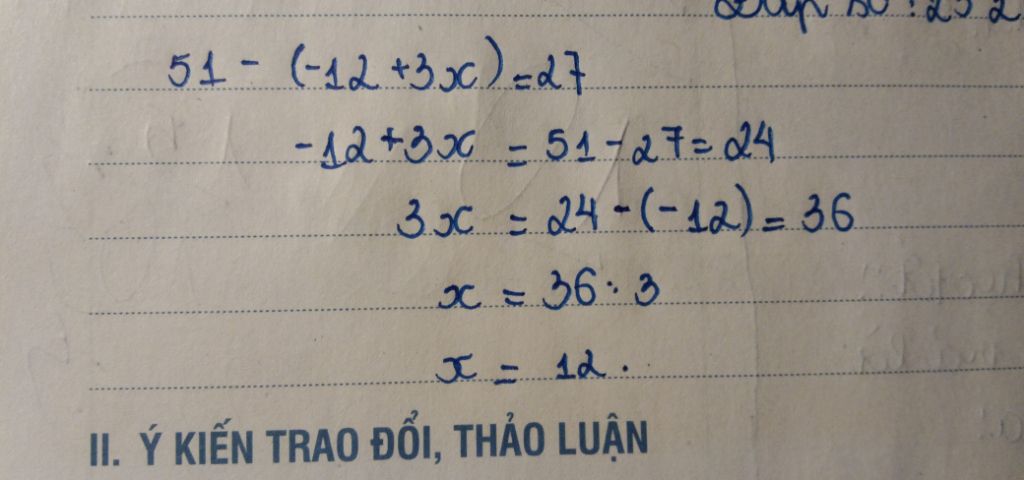 51 - (-12 + 3x) = 27
-12 + 3x = 51 - 27 = 24
3x = 24 - (-12) = 36
x = 36 : 3
x = 12.
II. Ý KIẾN TRAO ĐỔI, THẢO LUẬN